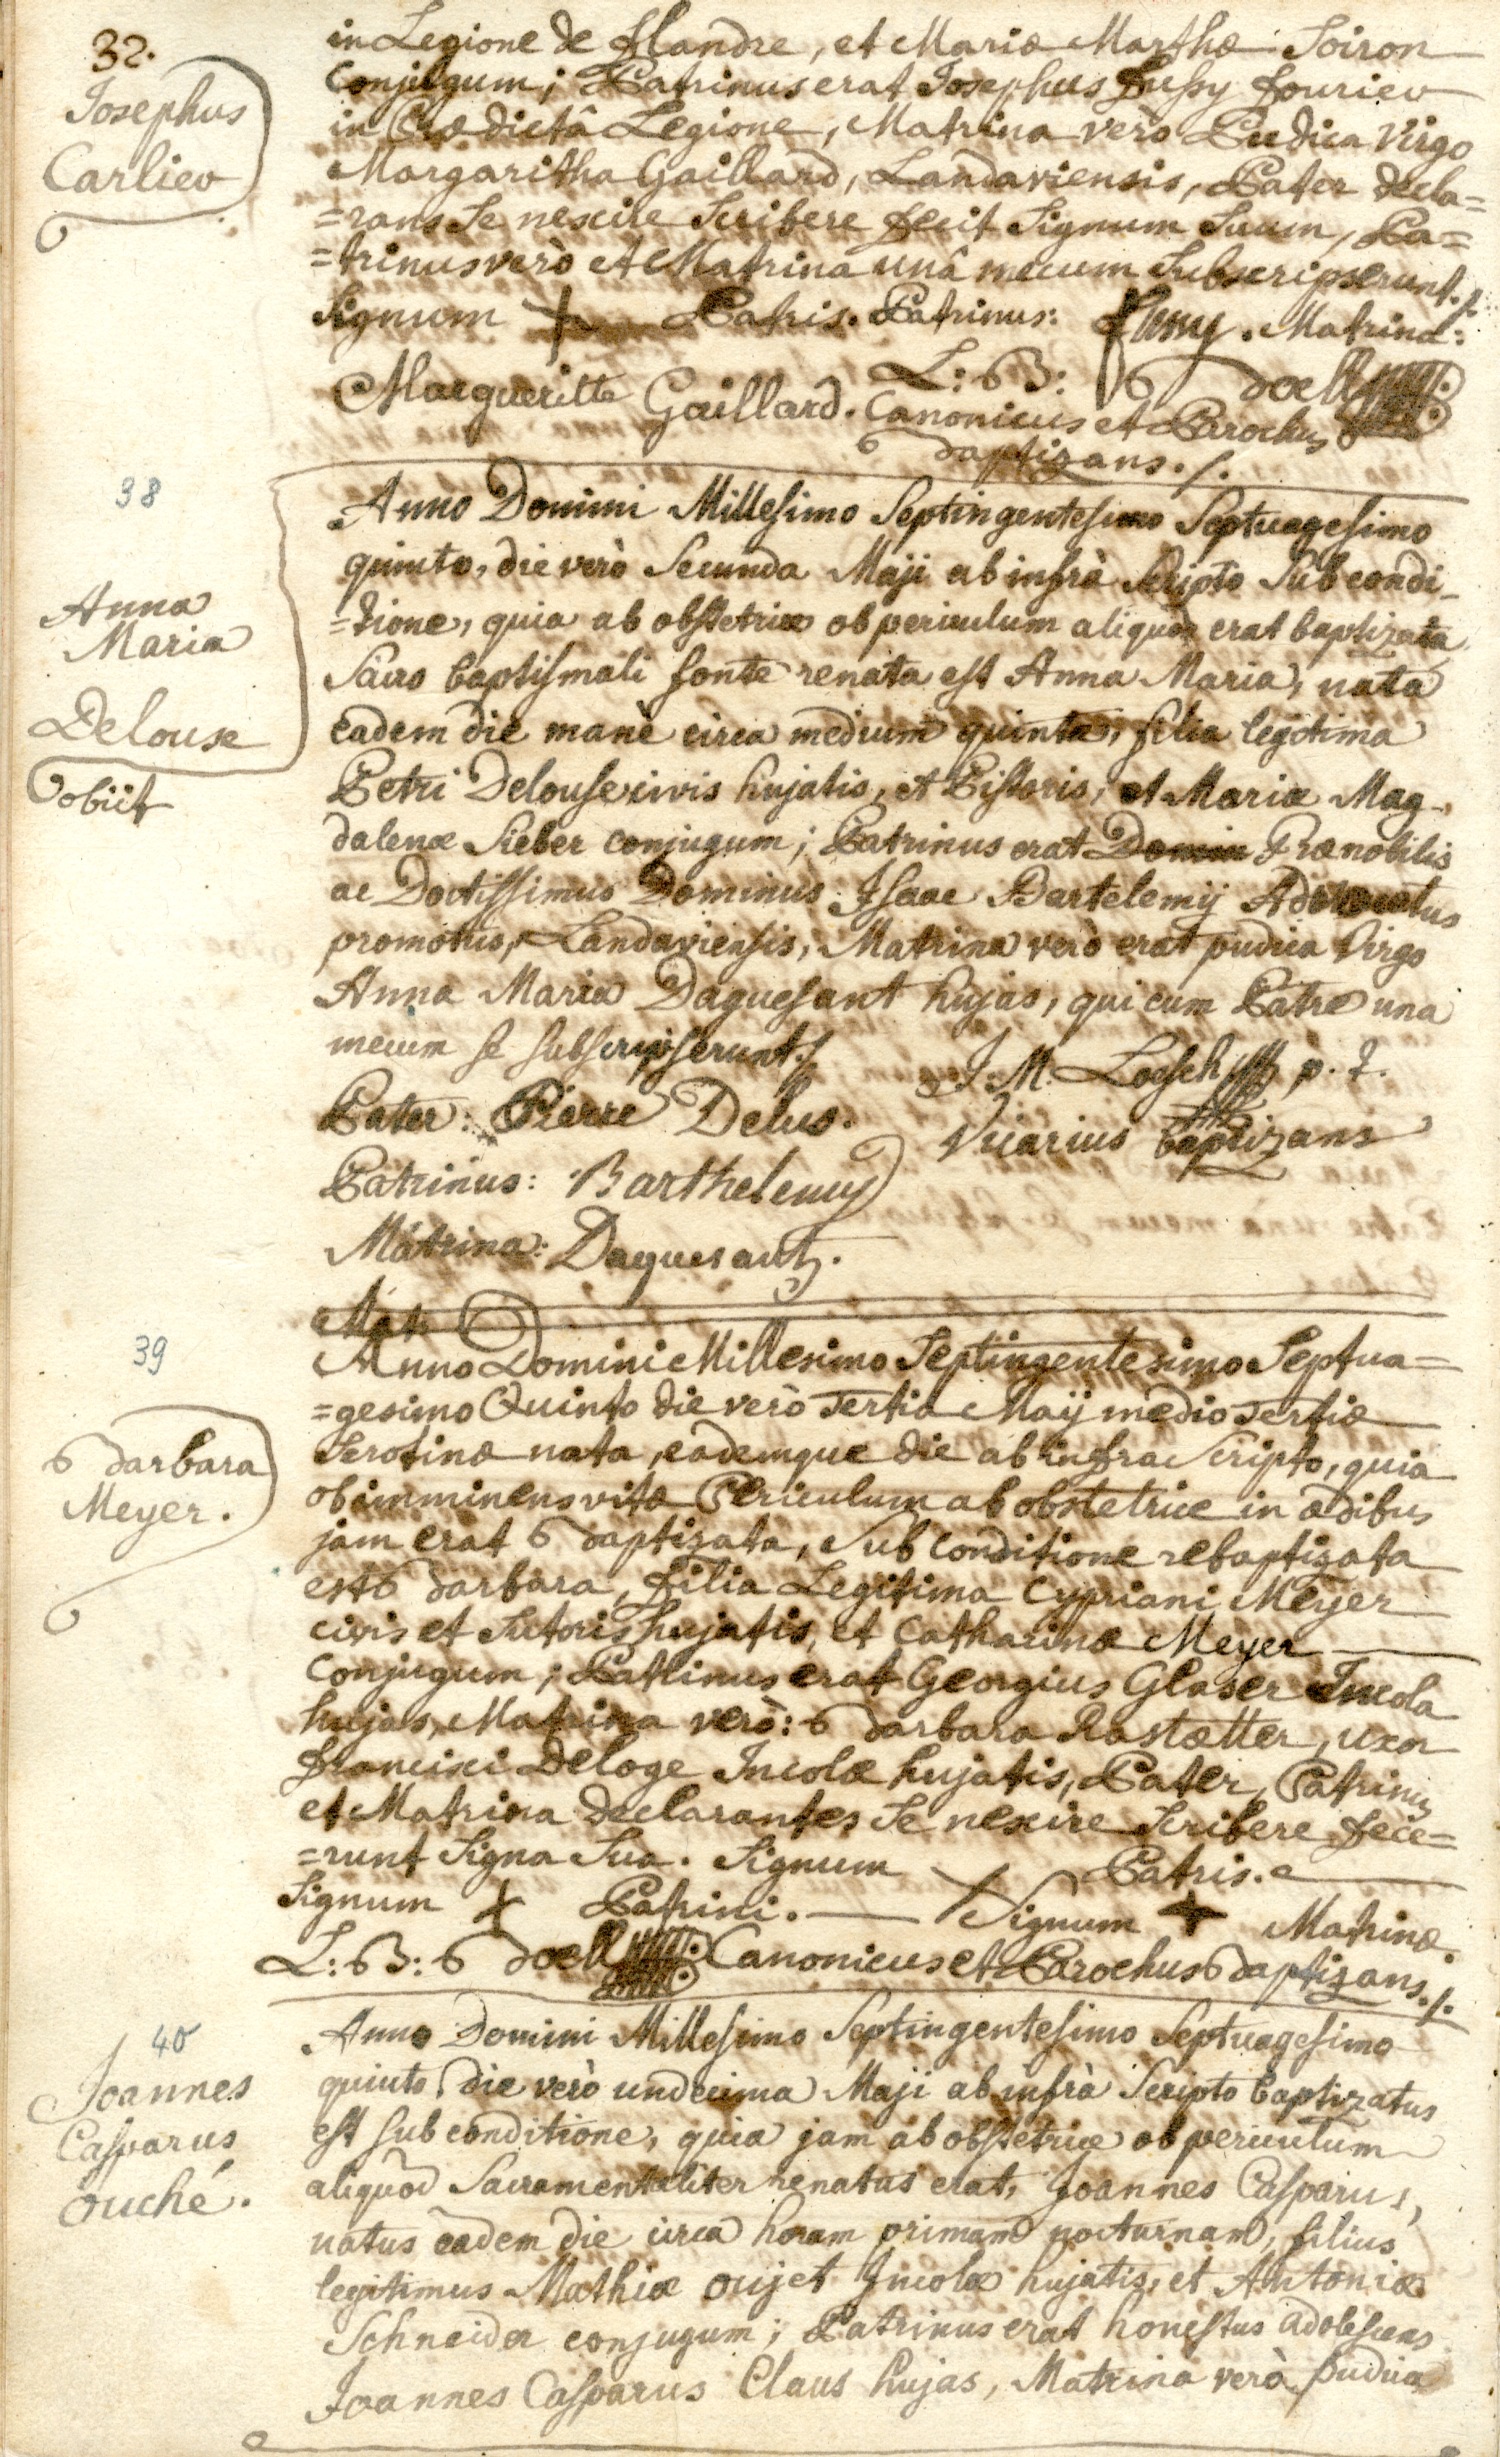 32.
Josephus
Carlier
in Legione de Flandre, et Mariæ Marthæ Soiron
Conjugum; Patrinus erat Josephus Fussy fourier
in Præ dictâ Legione, Matrina verò Pudica Virgo
Margaritha Gaillard, Landaviensis, Pater decla=
=rans Se nescire Scribere fecit Signum Suum, Pa=
=trinus verò et Matrina unâ mecum Subscripserunt ./.
Signum + Patris. Patrinus: fussy. Matrina:
Margueritte Gaillard. L: B: Boell
Canonicus et Parochus
Baptizans ./.
38
Anna
Maria
Delouse
obiit
Anno Domini Millesimo Septingentesimo Septuagesimo
quinto, die verò Secunda Maji ab infrà Scripto Sub condi_
=tione, quia ab obstetrice ob periculum aliquod erat baptizata
Sacro baptismali fonte renata est Anna Maria, nata
eadem die manè circa medium quintæ, filia legitima
Petri Delouse civis hujatis, et Pistoris, et Mariæ Mag_
dalenæ Sieber conjugum; Patrinus erat Domin Prænobilis
ac Doctissimus Dominus Isaac Bartelemÿ Advocatus
promotus, Landaviensis, Matrina verò erat pudica Virgo
Anna Maria Daguesant hujas, qui cum Patre una
mecum se subscripserunt ./.
J. M. Loesch p. t.
Vicarius baptizans
Pater: Pierre Delus.
Patrinus: Barthelemy
Matrina: Daguesant.
Mat:
39
Barbara
Meyer.
Anno Domini Millesimo Septingentesimo Septua=
=gesimo Quinto die verò Tertia Maij medio Tertiæ
Serotinæ nata, eademque die ab infra Scripto, quia
ob imminens vitæ Periculum ab obstetrice in ædibus
jam erat Baptizata, Sub Conditione rebaptizata
est Barbara, filia Legitima Cypriani Meyer
civis et Sutoris hujatis, et Catharinæ Meyer
Conjugum; Patrinus erat Georgius Glaser Incola
hujas, Matrina verò: Barbara Rastætter, uxor
francisci Deloge Incolæ hujatis, Pater, Patrinus
et Matrina Declarantes Se nescire Scribere fece=
=runt Signa Sua. Signum Patris.
Signum + Patrini. Signum + Matrinæ.
L: B: Boell Canonicus et Parochus Baptizans ./.
40
Joannes
Casparus
ouché.
Anno Domini Millesimo Septingentesimo Septuagesimo
quinto, die verò undecima Maji ab infrà Scripto baptizatus
est sub conditione, quia jam ab obstetrice ob periculum
aliquod Sacramentaliter renatus erat, Joannes Casparus,
natus eadem die circa horam primam nocturnam, filius
legitimus Mathiæ oujet Incolæ hujatis, et Antoniæ
Schneider conjugum; Patrinus erat honestus adolescens
Joannes Casparus Claus hujas, Matrina verò pudica